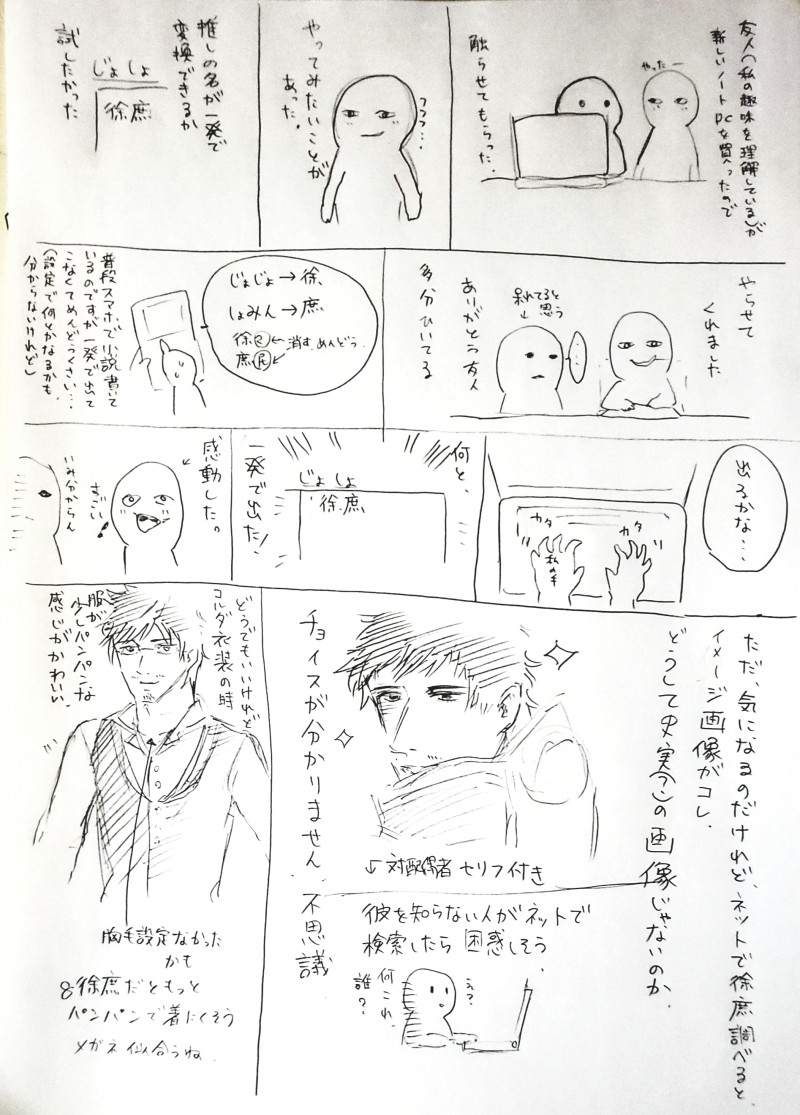 友人(私の趣味を理解している)が
新しいノートPCを買ったので
やったー
触らせてもらった.
フフフ…
やってみたいことが
あった.
推しの名が一発で
変換できるか
じょしょ
徐庶
試したかった
やらせて
くれました
呆れてると
思う
↓
…
ありがとう友人
多分ひいてる
じょじょ→徐々
しょみん→庶
徐々←消す.めんどう.
庶民
普段スマホで小説書いて
いるのですが一発で出て
こなくてめんどうくさい…
(設定で何とかなるかも
分からないけれど)
出るかな…
カタ
カタ
私の手
何と、
じょしょ
徐庶
一発で出た!
感動した。
すごい
いみ分からん
ただ、気になるのだけれど、ネットで徐庶調べると
イメージ画像がコレ.
どうして史実(?)の画像じゃないのか.
チョイスが分かりません
不思議
↓対配偶者セリフ付き
彼を知らない人がネットで
検索したら困惑しそう.
え?
何これ.
誰?
どうでもいいけれど
コルダ衣装の時
服が
少しパンパンな
感じがかわいい.
胸毛設定なかった
かも
8徐庶だともっと
パンパンで着にくそう
メガネ似合うね.